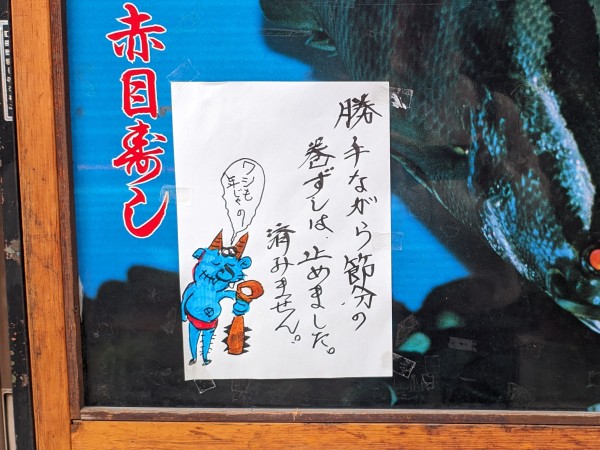 赤目寿し
勝手ながら節分の
巻ずしは、止めました。
済みません。
ワシも
年じゃの